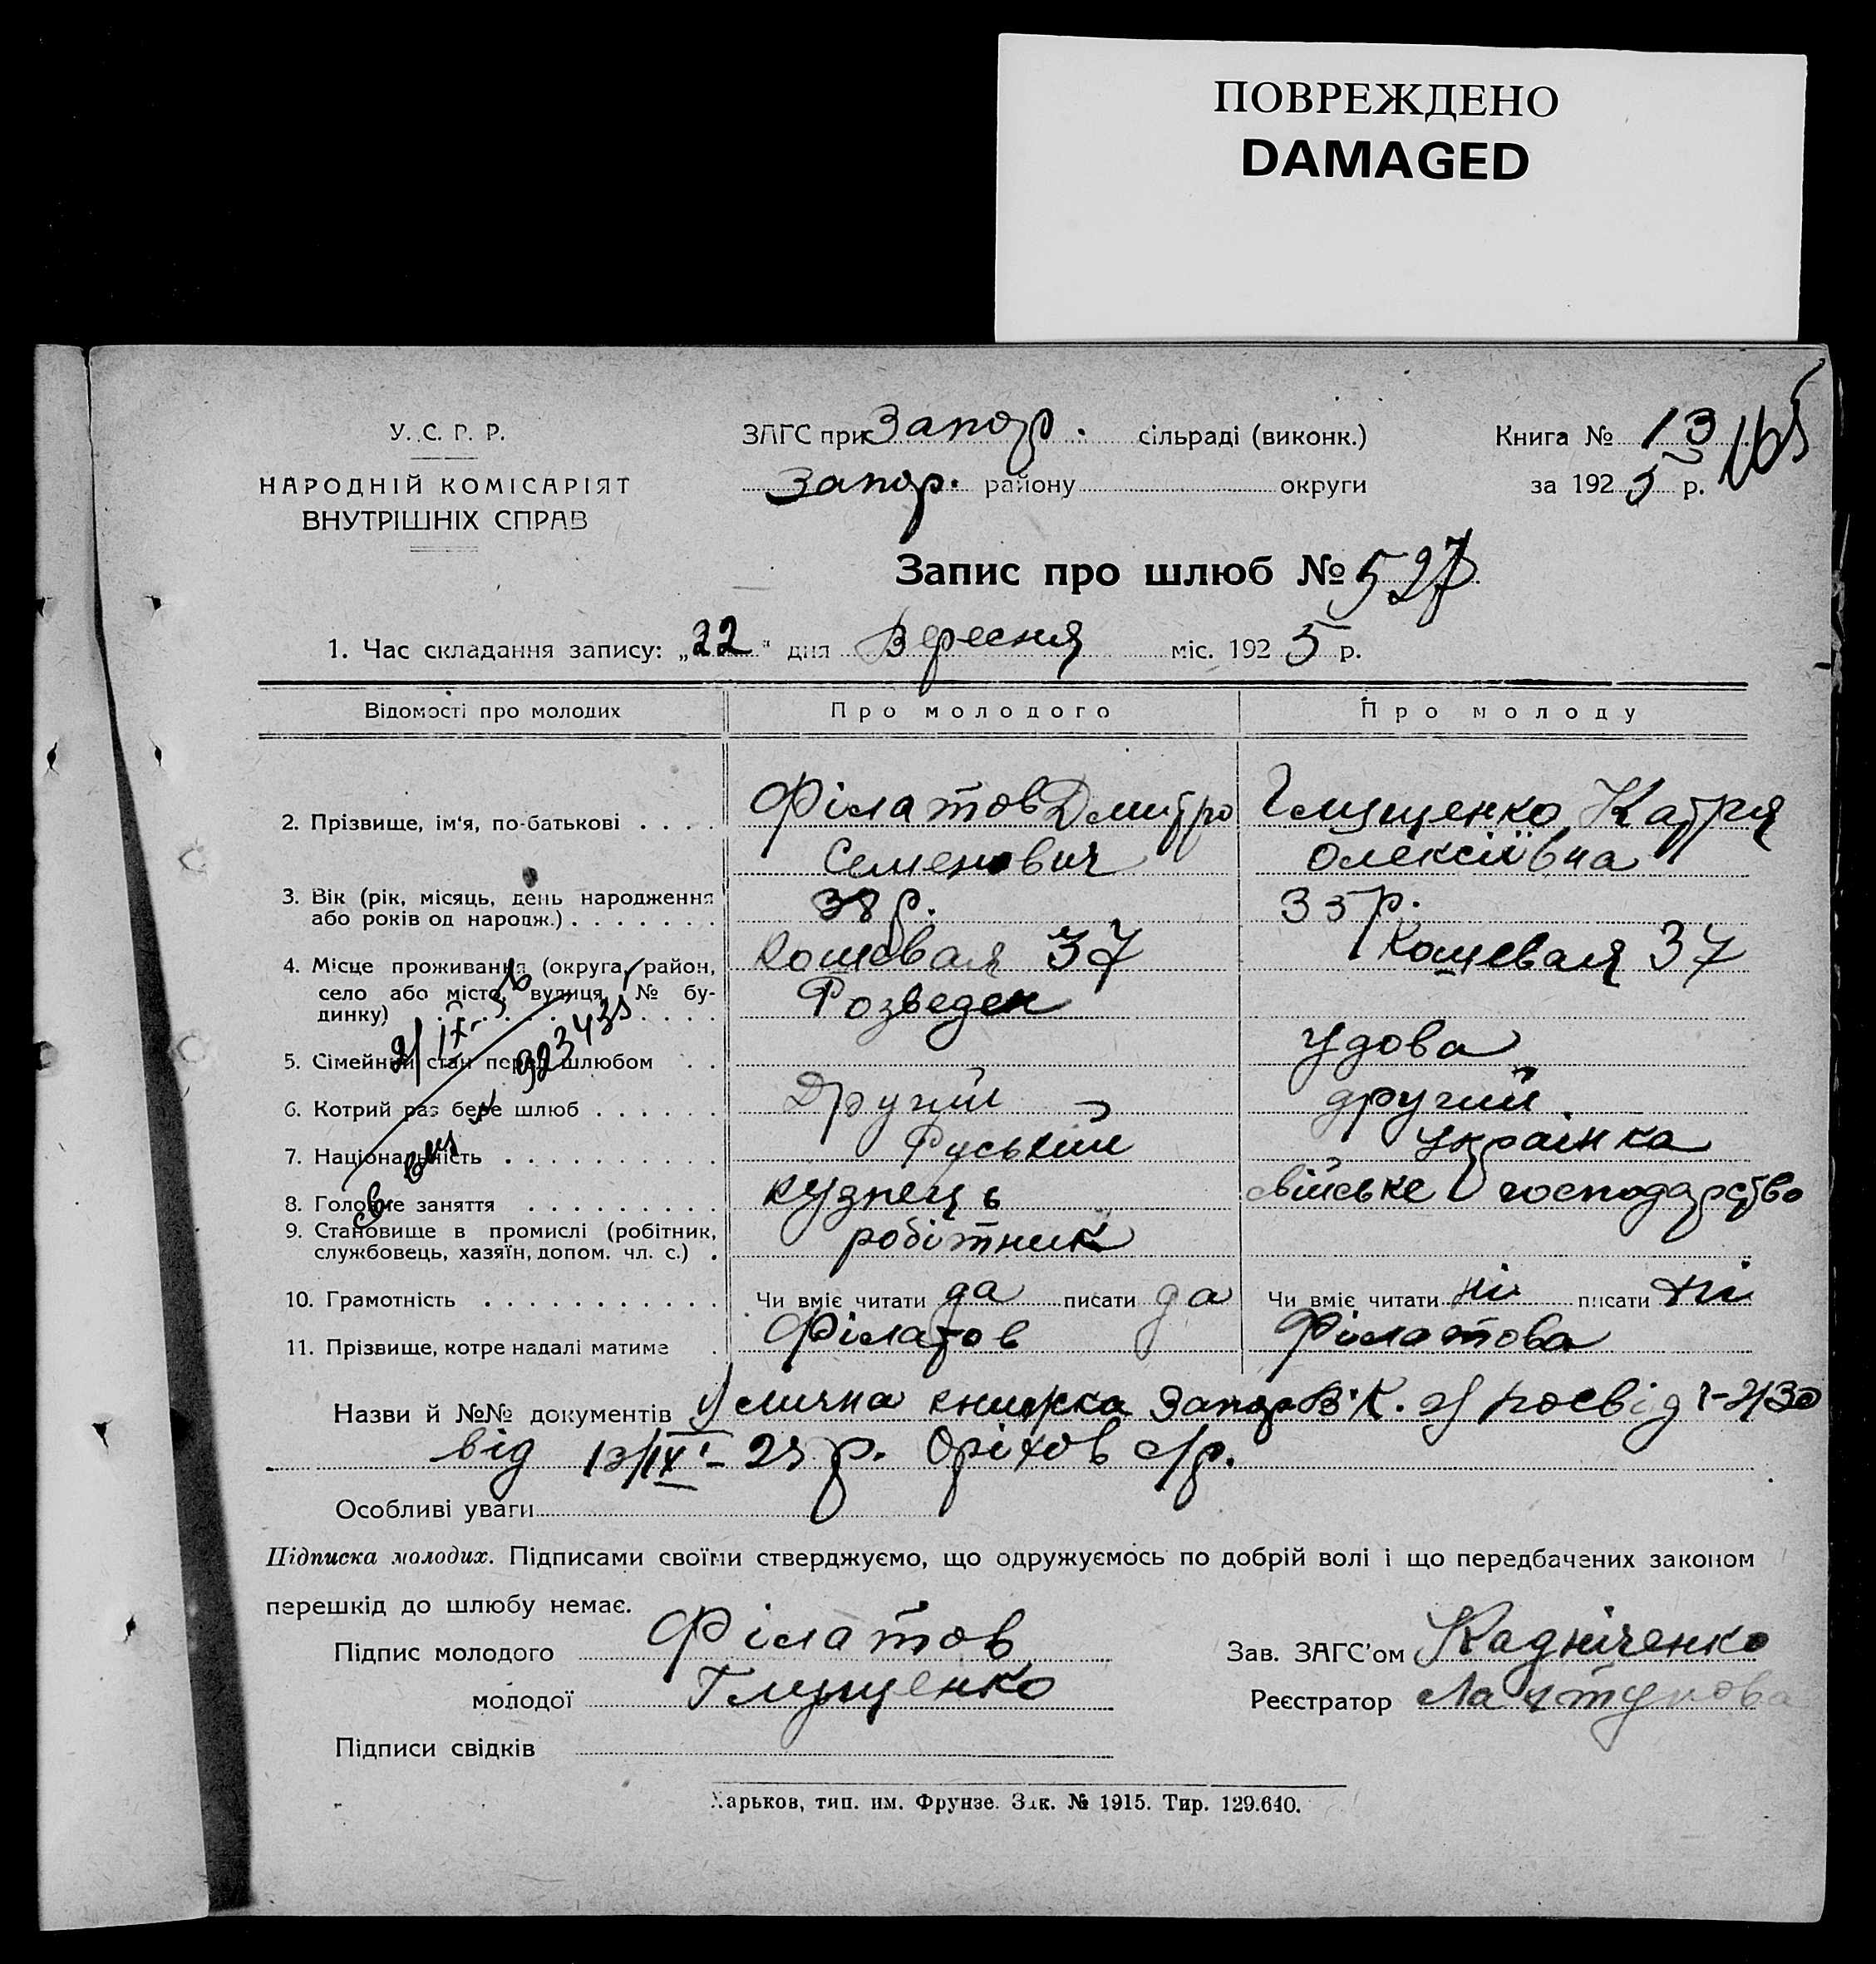 ПОВРЕЖДЕНО
DAMAGED
У. С. Р. Р.
НАРОДНІЙ КОМІСАРІЯТ
ВНУТРІШНІХ СПРАВ
ЗАГС при Запор. сільраді (виконк.)
Запор. району округи
Книга № 13
165
за 1925 р.
Запис про шлюб № 527
1. Час складання запису: „22" дня Вересня міс. 1925 р.
Відомості про молодих Про молодого Про молоду
2. Прізвище, ім'я, по-батькові . . . . Філатов Дмитро Глущенко Катря
Семенович Олексіївна
3. Вік (рік, місяць, день народження 38 р. 35 р.
або років од народж.) . . . . . . .
4. Місце проживання (округа, район, Кошевая 37 Кошевая 37
село або місто, вулиця, № бу-
динку) . . . . Розведен
5. Сімейний стан перед шлюбом . . удова
6. Котрий раз бере шлюб . . . . . . Другий другий
7. Національність . . . . . . . . . . Руський українка
8. Головне заняття . . . . . . . . . кузнець свійське господарство
9. Становище в промислі (робітник, робітник
службовець, хазяїн, допом. чл. с.) .
10. Грамотність . . . . . . . . . . . Чи вміє читати да писати да Чи вміє читати ні писати ні
11. Прізвище, котре надалі матиме . Філатов Філатова
923435
Назви й №№ документів книжка Запор В.К. посвід
від 13/IX - 25 р. Оріхов с/р.
Особливі уваги
Підписка молодих. Підписами своїми стверджуємо, що одружуємось по добрій волі і що передбачених законом
перешкід до шлюбу немає.
Підпис молодого Філатов
молодої Глущенко
Зав. ЗАГС'ом Кадніченко
Реєстратор
Підписи свідків
Харьков, тип. им. Фрунзе. Зак. № 1915. Тир. 129.640.